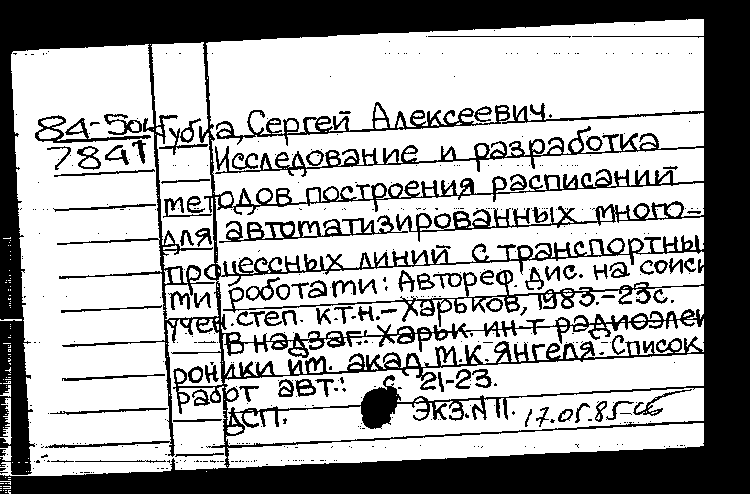 84-5оц Губка, Сергей Алексеевич.
7841 Исследование и разработка
методов построения расписаний
для автоматизированных много-
процессных линий с транспортны
ми роботами: Автореф. дис. на соиск
учен. степ. к.т.н. - Харьков, 1983. - 23с.
В надзаг.: Харьк. ин-т радиоэлек
роники им. акад. М.К. Янгеля. Список
работ авт.: с 21-23.
ДСП. Экз. N 11. 17.05.85